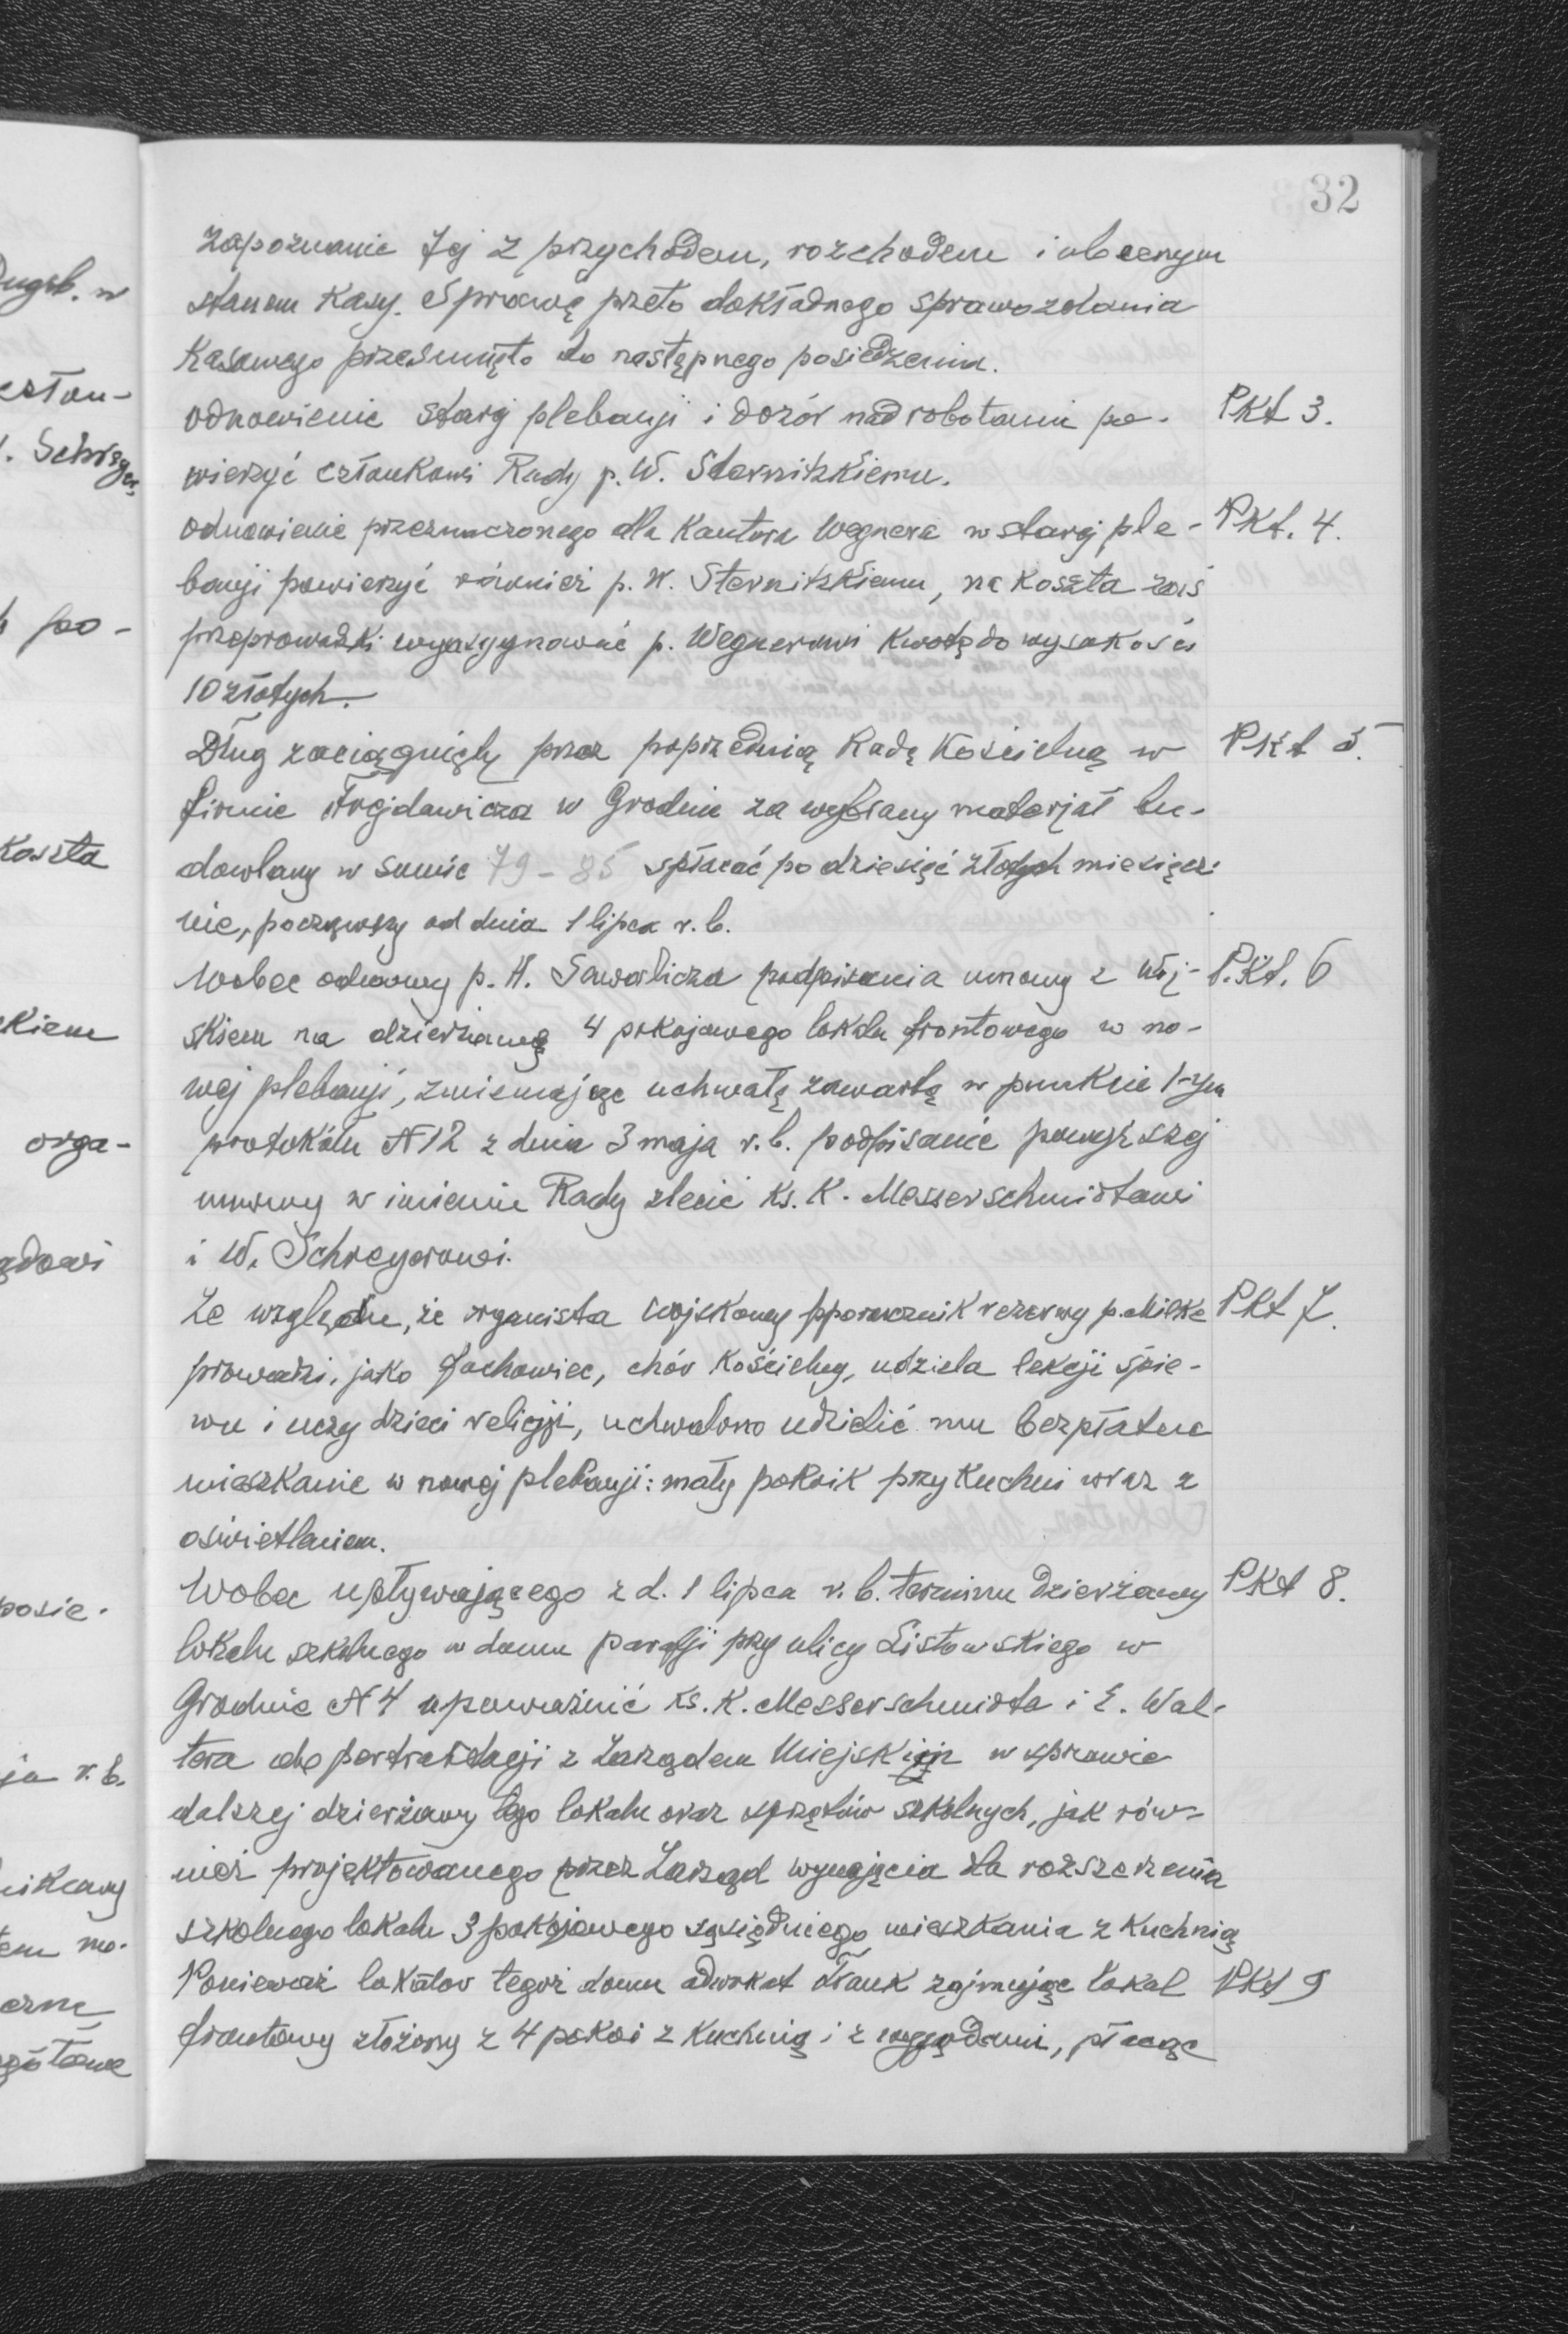 32
zapoznanie Jej z przychodem, rozchodem i obecnym
stanem Kasy. Sprawę przeto dokładnego sprawozdania
Kasowego przesunięto do następnego posiedzenia.
odnowienie starej plebanji i dozór nad robotami po- Pkt 3.
wierzyć członkowi Rady p. W. Sternitzkiemu.
odnowienie przeznaczonego dla Kantora Wegnera w starej ple- Pkt. 4.
banji powierzyć również p. W. Sternitzkiemu, na Koszta zaś
przeprowadzki wyasygnować p. Wegnerowi Kwotę do wysokości
10 złotych.
Dług zaciągnięty przez poprzednią Radę Kościelną w Pkt 5.
firmie Frejdowicza w Grodnie za wybrany materjał bu-
dowlany w sumie 79-85 spłacać po dziesięć złotych miesięcz-
nie, począwszy od dnia 1 lipca r.b.
Wobec odmowy p. H. Sawalicza podpisania umowy z Woj- P.Kt. 6
skiem na dzierżawę 4 pokojowego lokalu frontowego w no-
wej plebanji, zmieniając uchwałę zawartą w punkcie 1-ym
protokółu N 12 z dnia 3 maja r.b. podpisanie powyższej
umowy w imieniu Rady zlecić Ks. K. Messerschmidtowi
i W. Schreyerowi.
Ze względu, że organista wojskowy pporucznik rezerwy p. Milke Pkt 7.
prowadzi, jako fachowiec, chór Kościelny, udziela lekcji śpie-
wu i uczy dzieci religji, uchwalono udzielić mu bezpłatne
mieszkanie w nowej plebanji: mały pokoik przy Kuchni wraz z
oświetleniem.
Wobec upływającego z d. 1 lipca r.b. terminu dzierżawy Pkt 8.
lokalu szkolnego w domu parafji przy ulicy Listowskiego w
Grodnie N 4 upoważnić Ks. K. Messerschmidta i E. Wal-
tera do pertraktacji z Zarządem Miejskim w sprawie
dalszej dzierżawy tego lokalu oraz sprzętów szkolnych, jak rów-
nież projektowanego przez Zarząd wynajęcia dla rozszerzenia
szkolnego lokalu 3 pokojowego sąsiedniego mieszkania z Kuchnią
Ponieważ lokator tegoż domu adwokat Frank zajmując lokal Pkt 9
frontowy złożony z 4 pokoi z Kuchnią i z wygodami, płacąc